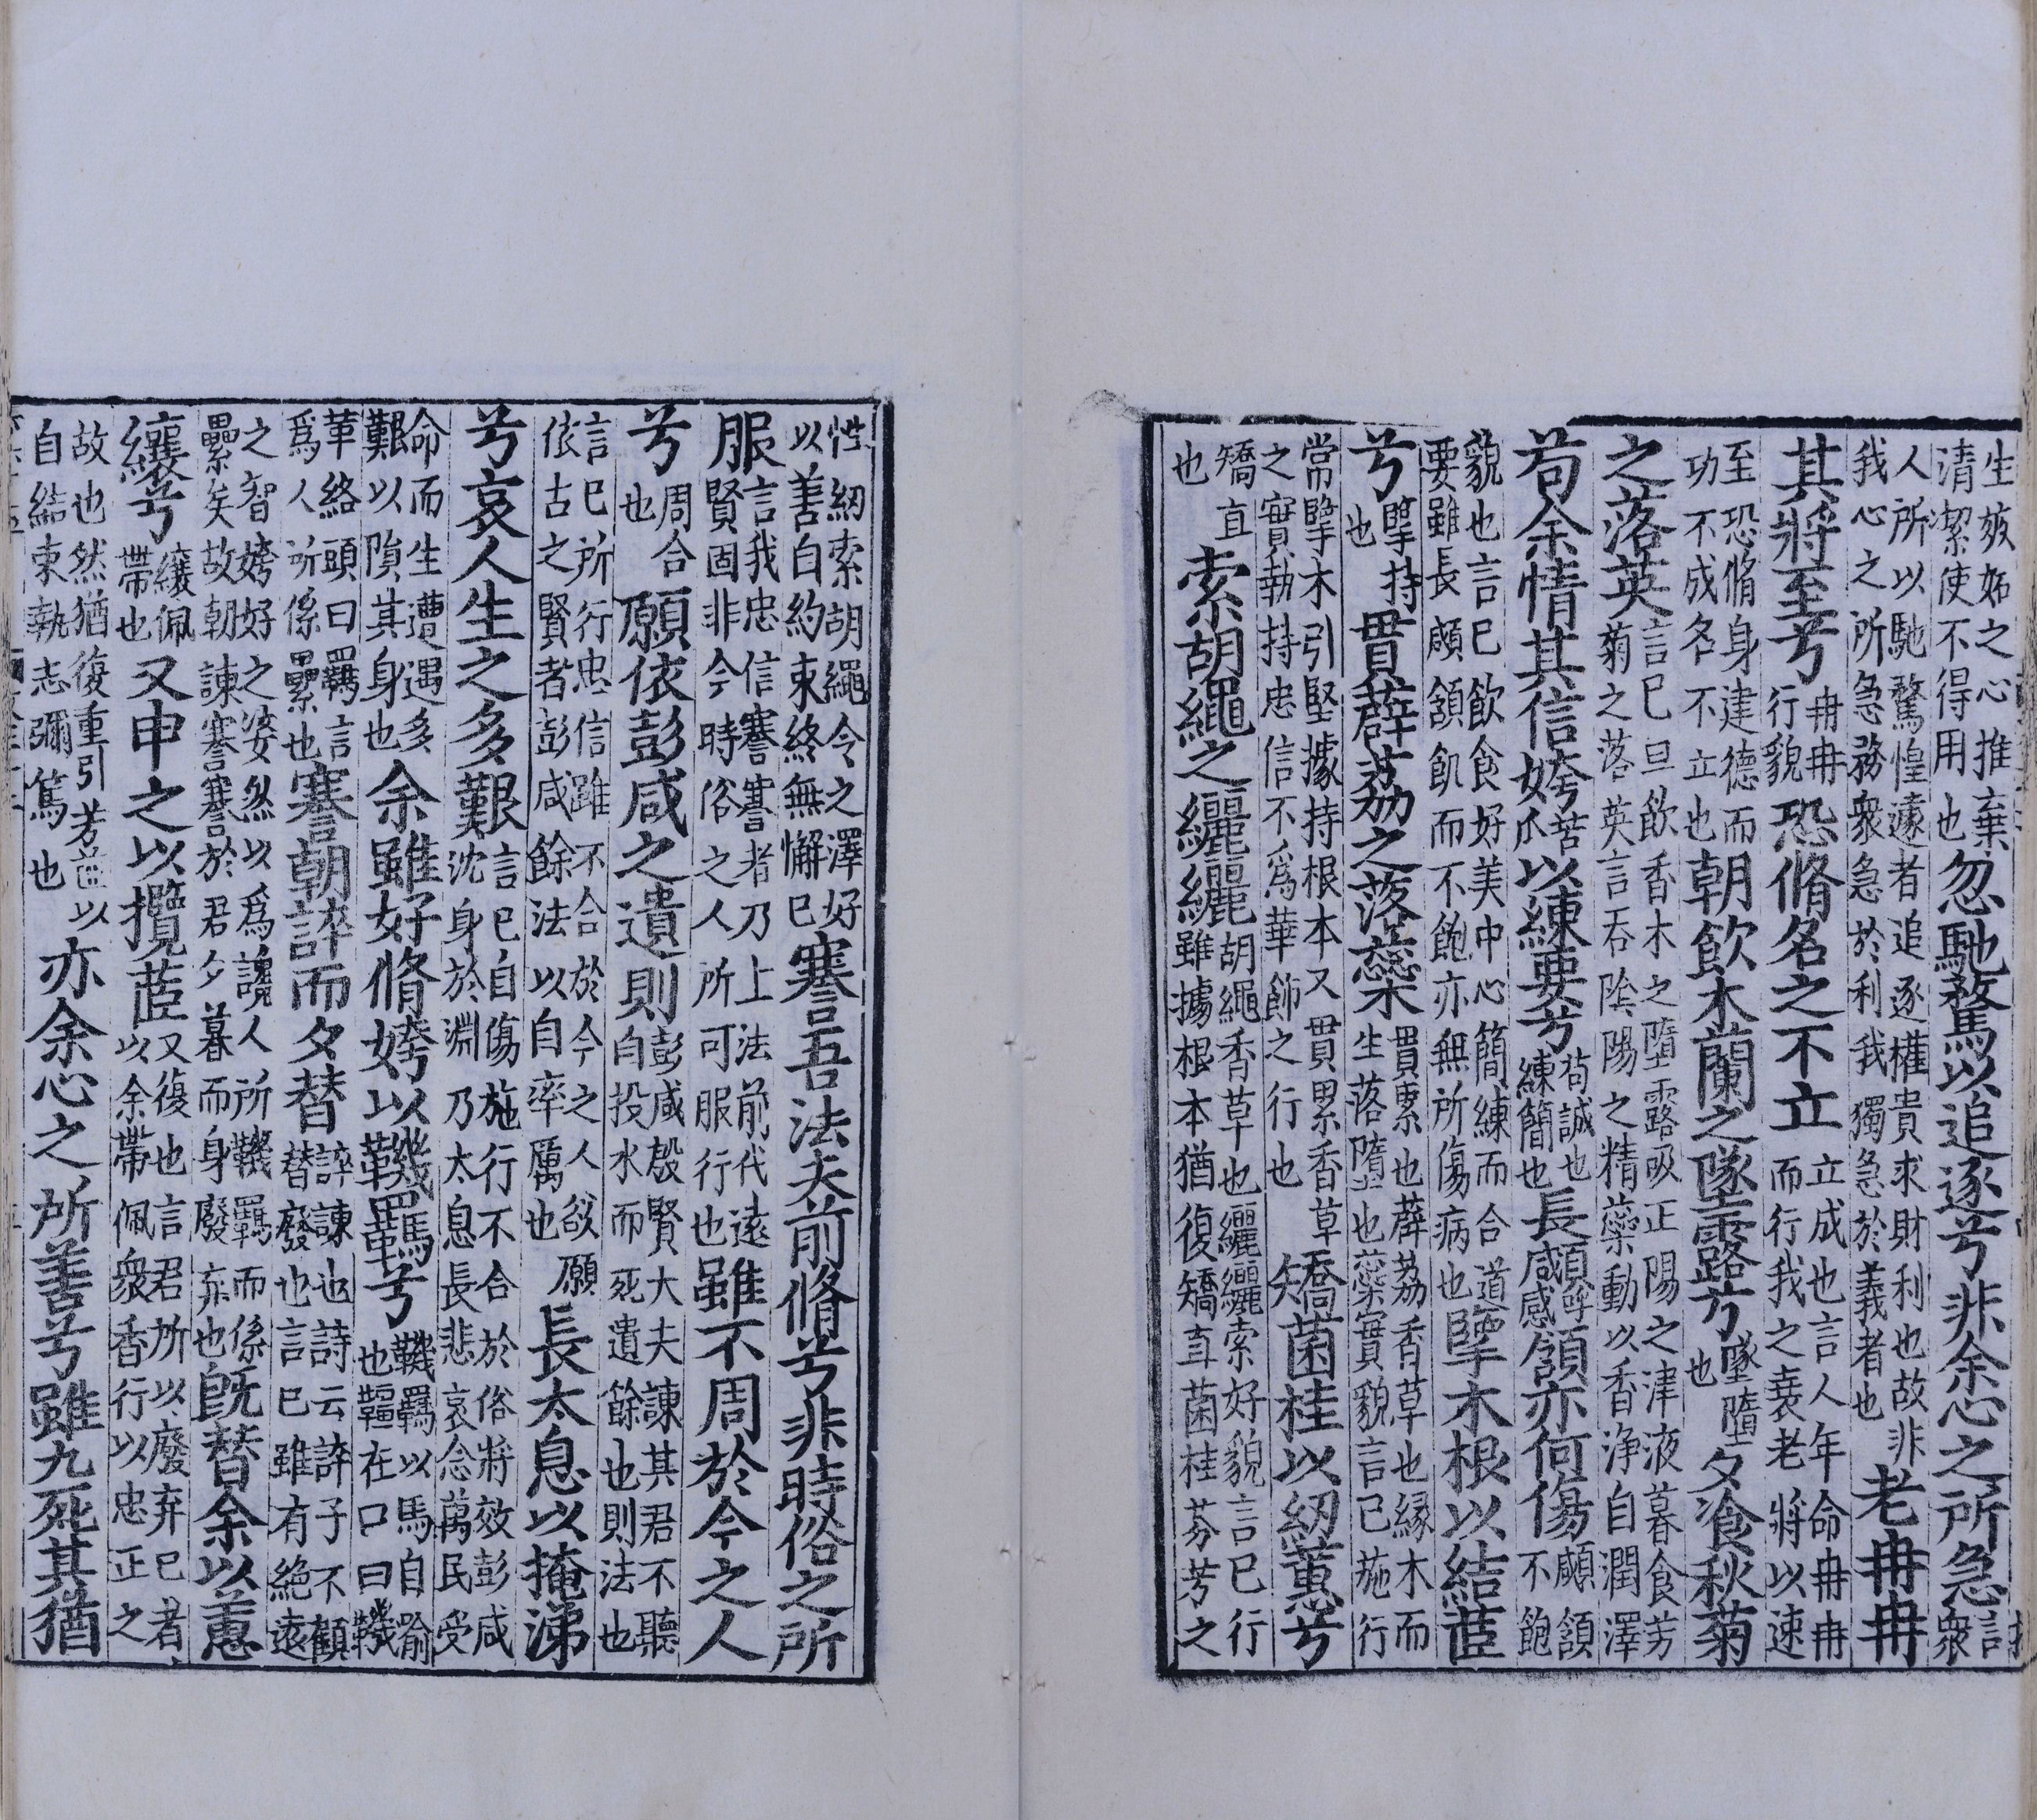 生嫉妬之心推棄清潔使不得用也忽馳騖以追逐兮非余心之所急言衆
人所以馳騖惶遽者追逐權貴求財利也故非我心之所急務衆急於利我獨急於義者也老冉冉
其將至兮冉冉行貌恐脩名之不立立成也言人年命冉冉而行我之衰老將以速
至恐脩身建德而功不成名不立也朝飲木蘭之墜露兮墜墮也夕飡秋菊
之落英言己旦飲香木之墮露吸正陽之津液暮食芳菊之落英言吞陰陽之精蘂動以香浄自潤澤
苟余情其信姱苦瓜以練要兮苟誠也練簡也長顑呼感頷亦何傷顑頷不飽
貌也言己飲食好美中心簡練而合道要雖長顑頷飢而不飽亦無所傷病也擥木根以結茝
兮擥持也貫薜荔之落蘂貫累也薜荔香草也縁木而生落墮也蘂實貌言己施行
常擥木引堅據持根本又貫累香草之實執持忠信不爲華飾之行也矯菌桂以紉蕙兮
矯直也索胡繩之纚纚胡繩香草也纚纚索好貌言己行雖據根本猶復矯直菌桂芬芳之
性紉索胡繩令之澤好以善自約束終無懈已謇吾法夫前脩兮非時俗之所
服言我忠信謇謇者乃上法前代遠賢固非今時俗之人所可服行也雖不周於今之人
兮周合也願依彭咸之遺則彭咸殷賢大夫諫其君不聽自投水而死遺餘也則法也
言己所行忠信雖不合於今之人欲願依古之賢者彭咸餘法以自率厲也長太息以掩涕
兮哀人生之多艱言己自傷施行不合於俗將效彭咸沈身於淵乃太息長悲哀念萬民受
命而生遭遇多艱以隕其身也余雖好脩姱以鞿羈兮鞿羈以馬自喻也韁在口曰鞿
革絡頭曰羈言爲人所係累也謇朝誶而夕替誶諫也詩云誶予不顧替廢也言己雖有絶遠
之智姱好之姿然以爲讒人所鞿羈而係纍矣故朝諫謇謇於君夕暮而身廢弃也旣替余以蕙
纕兮纕佩帶也又申之以攬茝又復也言君所以廢弃己者以余帶佩衆香行以忠正之
故也然猶復重引芳茝以自結束執志彌篤也亦余心之所善兮雖九死其猶